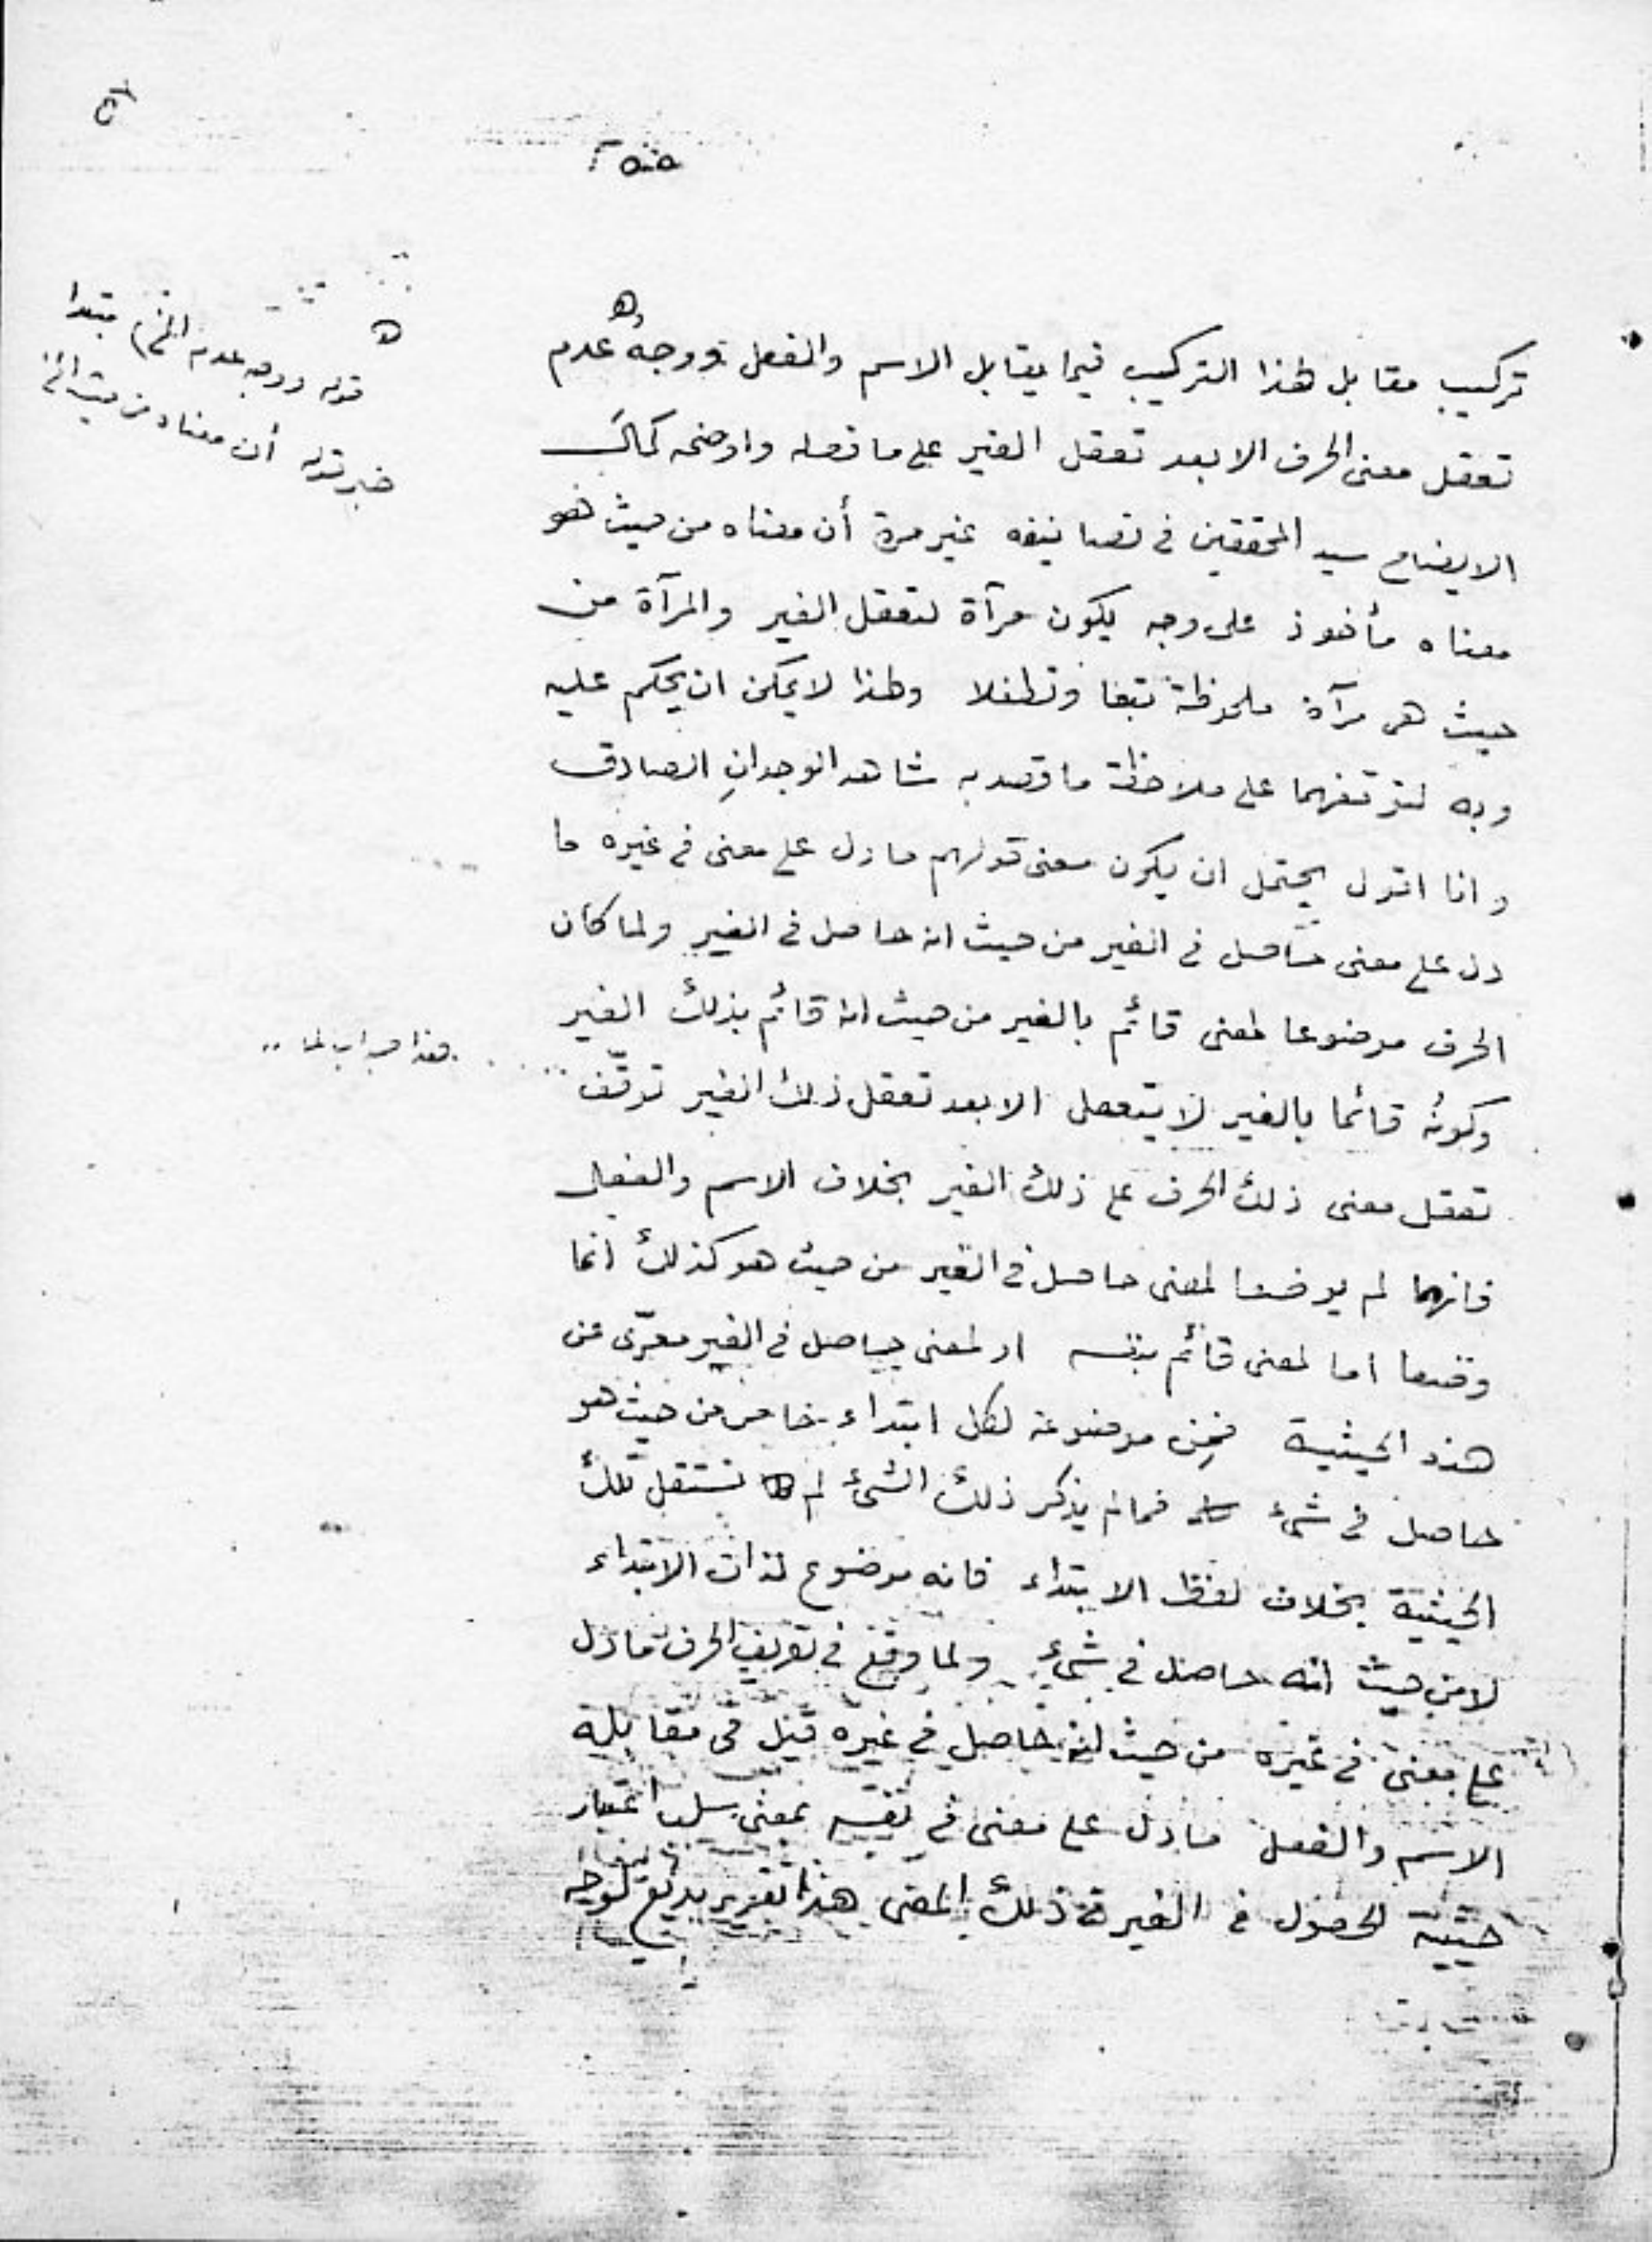 تركيب مقابل لهذا التركيب فيما يقابل الاسم والفعل ووجهُ عدم
تعقل معنى الحرف الا بعد تعقل الغير على ما فصله واوضحه كمال
الايضاح سيد المحققين في تصانيفه غير مرة أن معناه من حيث هو
معناه مأخوذ على وجه يكون مرآة لتعقل الغير والمرآة من
حيث هى مرآة ملحوظة تبعا وتطفلا ولهذا لا يمكن ان يحكم عليه
وبه لتوقفهما على ملاحظة ما قصد به شاهد الوجدانِ الصادق
وانا اقول يحتمل ان يكون معنى قولهم ما دل على معنى في غيره ما
دل على معنى حاصل في الغير من حيث انه حاصل في الغير ولما كان
الحرف موضوعا لمعنى قائم بالغير من حيث انه قائم بذلك الغير
وكونُه قائما بالغير لا يتعقل الا بعد تعقل ذلك الغير توقّف
تعقل معنى ذلك الحرف على ذلك الغير بخلاف الاسم والفعل
فانهما لم يوضعا لمعنى حاصل في الغير من حيث هو كذلك انما
وضعا اما لمعنى قائم بنفسه او لمعنى حاصل في الغير معرّى عن
هذه الحيثية فمِن موضوعة لكل ابتداء خاص من حيث هو
حاصل في شىء فما لم يذكر ذلك الشىء لم تستقل تلك
الحيثية بخلاف لفظ الابتداء فانه موضوع لذات الابتداء
لا من حيث انه حاصل في شىء ولما وقع في تعريف الحرف ما دل
على معنى في غيره من حيث انه حاصل في غيره قيل في مقابلة
الاسم والفعل ما دل على معنى في نفسه بمعنى سلب اعتبار
حيثية الحصول في الغير في ذلك المعنى هذا تقرير بديع لوجه
ه
قوله ووجه عدم الخ) مبتدا
خبر قوله أن معناه من حيث الخ
هذا جواب لما